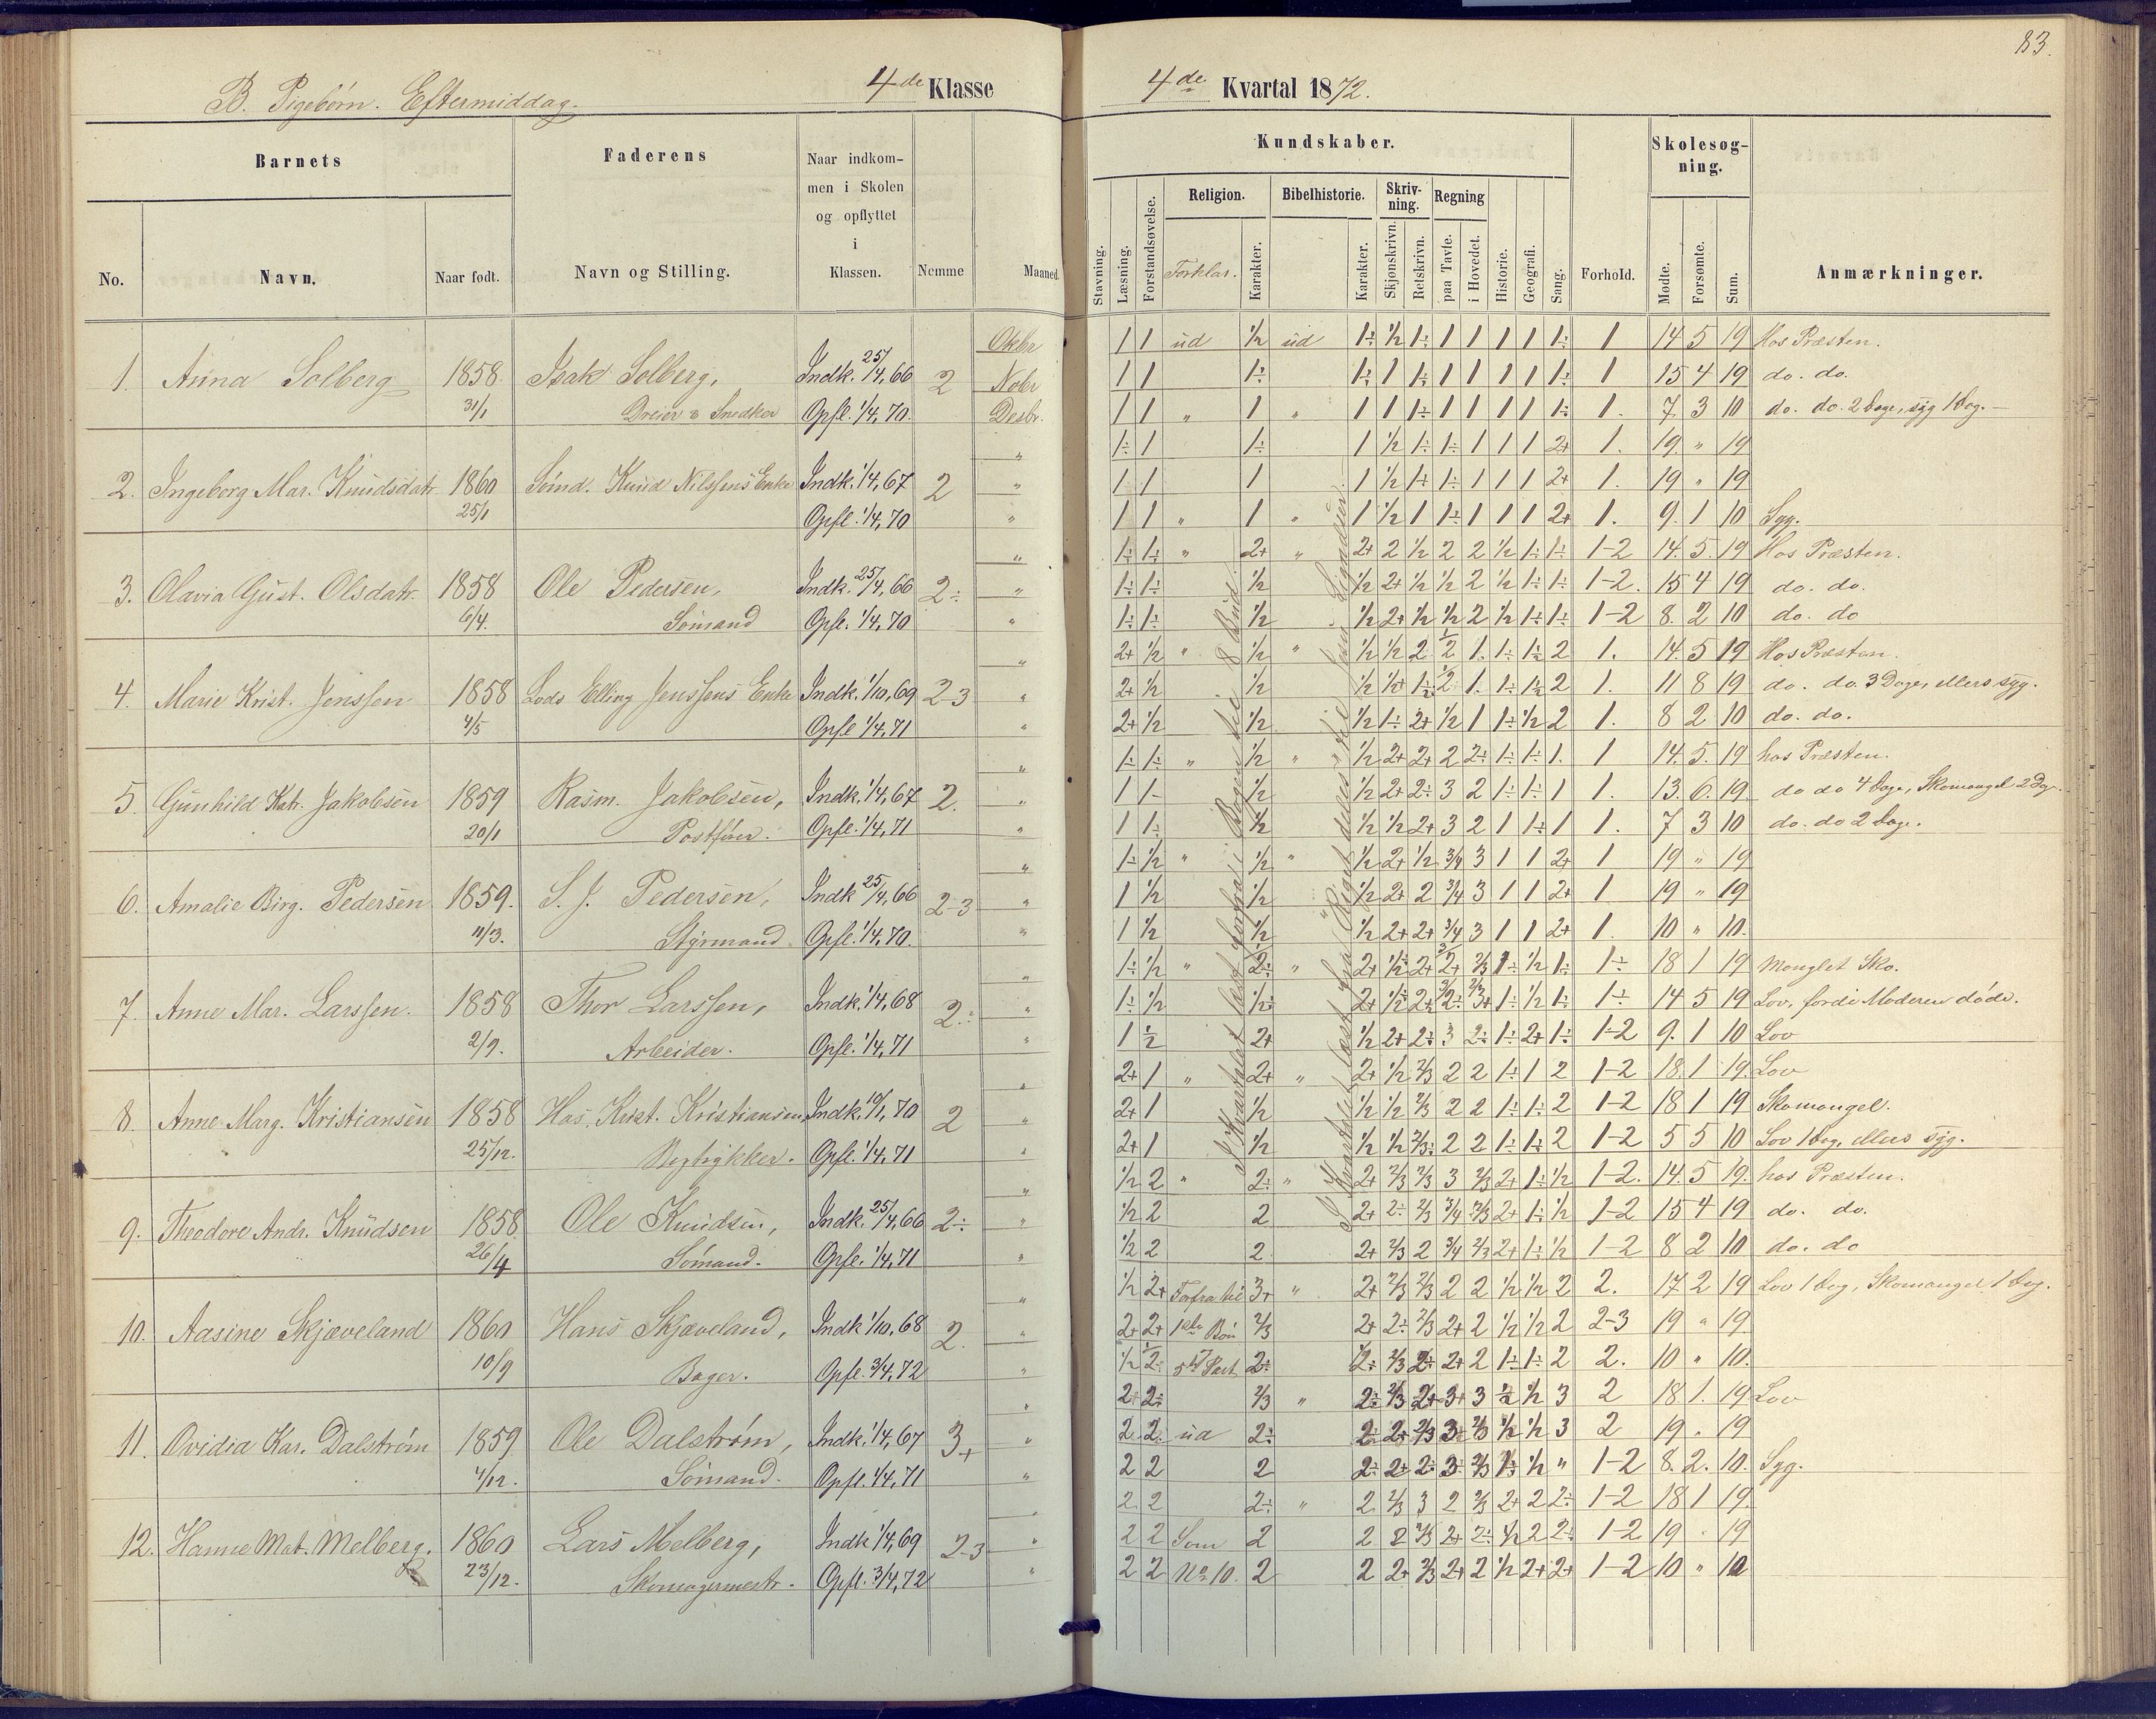 83.
B. Pigebørn. Eftermiddag.
4de Klasse
4de Kvartal 1872.
Barnets
Faderens
Naar indkom-
men i Skolen
og opflyttet
i
Klassen.
Nemme
Maaned.
No.
Navn.
Naar født.
Navn og Stilling.
Kundskaber.
Skolesøg-
ning.
Stavning.
Læsning.
Forstandsøvelse.
Religion.
Forklar.
Karakter.
Bibelhistorie.
Karakter.
Skriv-
ning.
Skjønskrivn.
Retskrivn.
Regning
paa Tavle.
i Hovedet.
Historie.
Geografi.
Sang.
Forhold.
Mødte.
Forsømte.
Sum.
Anmærkninger.
1. Anna Solberg 1858 31/1 Isak Solberg, Dreier & Snedker Indk. 25/4, 66 Opfl. 1/4, 70. 2
Oktbr 1 1 ud 1/2 ud 1÷ 1/2 1÷ 1 1 1 1 1÷ 1 14 5 19 Hos Præsten.
Nobr 1 1 1÷ 1÷ 1 1÷ 1 1 1 1 1÷ 1 15 4 19 do. do.
Desbr. 1 1 " 1 " 1 1 1÷ 1 1 1 1 1÷ 1. 7 3 10 do. do. 2 dage, syg 1 dag.
2. Ingeborg Mar. Knudsdatr 1860 25/1 Sømd. Knud Nilssens Enke Indk. 1/4, 67 Opfl. 1/4, 70 2
" 1÷ 1 1÷ 1 1/2 1÷ 1÷ 1 1 1 2+ 1. 19 " 19
" 1 1 1 1 1/2 1+ 1÷ 1 1 1 2+ 1. 19 " 19
" 1 1 " 1 " 1 1/2 1 1÷ 1 1 1 2+ 1. 9. 1 10 Syg.
3. Olavia Gust. Olsdatr 1858 6/4. Ole Pedersen, Sømand Indk. 25/4, 66 Opfl. 1/4, 70 2÷
" 1÷ 1÷ " 2+ " 2+ 2 1/2 2 2 1/2 1÷ 1÷ 1-2 14. 5. 19 Hos Præsten.
" 1÷ 1÷ 1/2 1/2 2+ 1/2 1/2 2 1/2 1÷ 1÷ 1-2. 15 4 19 do. do.
" 1÷ 1÷ 1/2 1/2 2+ 1/2 1/2 2 1/2 1÷ 1÷ 1-2 8. 2 10 do. do
4. Marie Krist. Jenssen 1858 4/5 Lods Elling Jenssens Enke Indk. 1/10, 69 Opfl 1/4, 71 2-3
" 2+ 1/2 " 1/2 " 1/2 1/2 2 1/2 1. 1÷ 1÷ 2 1. 14. 5 19 Hos Præsten.
" 2+ 1/2 1/2 1/2 1+ 1÷ 1/2 1. 1÷ 1÷ 2 1. 11 8 19 do. do. 3 Dage, ellers syg.
" 2+ 1/2 1/2 1/2 1÷ 2+ 1/2 1 1÷ 1/2 2 1. 8 2 10 do. do.
5. Gunhild Katr. Jakobsen 1859 20/1 Rasm. Jakobsen, Postfør. Indk. 1/4, 67 Opfl. 1/4, 71 2.
" 1÷ 1÷ " 1/2 " 1/2 2+ 2+ 2 2÷ 1÷ 1÷ 1. 1 14. 5. 19 hos Præsten.
" 1 1- 1/2 1/2 2+ 2÷ 3 2 1÷ 1÷ 1 1. 13. 6. 19 do do 4 dage, Skomangel 2 Dg.
" 1 1÷ 1/2 1/2 1/2 2+ 3 2 1 1÷ 1 1. 7 3 10 do. do 2 dage.
6. Amalie Birg. Pedersen 1859. 11/3. S. J. Pedersen, Styrmand Indk 25/4, 66 Opfl. 1/4, 70. 2-3
" 1÷ 1/2 " 1/2 " 1/2 2+ 1/2 3/4 3 1 1 2+ 1 19 " 19
" 1 1/2 1/2 1/2 2+ 2 3/4 3 1 1 2+ 1 19 " 19
" 1 1/2 1/2 1/2 2+ 2+ 3/4 3 1 1 2+ 1. 10 " 10.
7. Anne Mar. Larssen. 1858 2/9. Thor Larssen, Arbeider. Indk. 1/4, 68 Opfl. 1/4, 71 2÷
" 1÷ 1/2 " 2÷ " 2+ 1/2 2+ 2+ 2/3 1÷ 1/2 1÷ 1÷ 18 1 19 Manglet Sko.
" 1÷ 1/2 1/2 2+ 1/2 2÷ 2÷ 3+ 1÷ 1/2 1÷ 1÷ 14 5 19 Lov, fordi Moderen døde.
" 1 1/2 2+ 1/2 2+ 2÷ 3 2÷ 1÷ 2+ 1÷ 1-2 9. 1 10 Lov
8. Anne Marg. Kristiansen 1858 25/12. Has. Krist. Kristiansen Indk. 10/1, 70 Opfl. 1/4, 71 2
" 2+ 1 " 2+ " 2+ 1/2 2/3 2 2 1÷ 1 2 1-2 18. 1 19 Lov
" 2+ 1 1/2 1/2 1/2 2/3 2 2 1÷ 1÷ 2 1-2 18 1 19 Skomangel.
" 2+ 1 1/2 1/2 1/2 2/3÷ 2 2 1÷ 1÷ 2 1-2 5 5 10 Lov 1 dag, ellers syg.
9. Theodore Andr. Knudsen 1858 26/4 Ole Knudsen, Sømand. Indk. 25/4, 66 Opfl. 1/4, 71 2÷
" 1/2 2 " 2÷ " 2+ 2/3 2/3 3 2/3 2+ 1÷ 1/2 1-2. 14. 5 19. hos Præsten.
" 1/2 2 2 2+ 2÷ 2/3 3/4 2/3 2+ 1÷ 1/2 1-2 15 4 19 do. do.
" 1/2 2 2 2+ 2/3 2 3/4 2/3 2+ 1÷ 1/2 1-2 8 2 10 do. do
10. Aasine Skjæveland 1860 10/9 Hans Skjæveland, Bager. Indk 1/10, 68 Opfl. 3/4, 72 2.
" 1/2 2+ Forfra til 3+ " 2+ 2/3 2/3 2 2 1/2 1/2 2 2. 17 2 19 Lov 1 dag, Skomangel 1 dag.
" 2+ 2+ 1ste Bøn 2/3 2+ 2÷ 2/3 2+ 2 1/2 1/2 2 2-3 19 " 19
" 1/2 2÷ 5te Part 2÷ 2÷ 2/3 2+ 2+ 2 1÷ 1÷ 2 2. 10 " 10.
11. Ovidia Kar. Dalstrøm 1859 4/12. Ole Dalstrøm, Sømand. Indk. 1/4, 67 Opfl. 1/4, 71 3+
" 2+ 2÷ 2/3 " 2÷ 2/3 2+ 3+ 3 1/2 1/2 3 2 18 1. 19 Lov
" 2. 2. ud 2÷ 2÷ 2+ 2/3 3 2/3 1/2 1/2 3 2 19 " 19
" 2 2 2 2÷ 2+ 2÷ 3 2/3 1÷ 1/2 " 1-2 8. 2. 10. Syg.
12. Hanne Mat. Melberg. 1860 23/12. Lars Melberg, Skomagermestr. Indk 1/4, 69 Opfl. 3/4, 72 2-3
" 2. 2 2÷ " 2 2/3 3 2 2/3 2+ 2 2÷ 1-2 18 1 19.
" 2 2 Som 2 2 2 2/3 2+ 2÷ 1/2 2 2÷ 1-2 19 " 19
" 2 2 No 10. 2 2 2+ 2/3 2+ 2 1/2 2+ 2+ 1-2 10 " 10